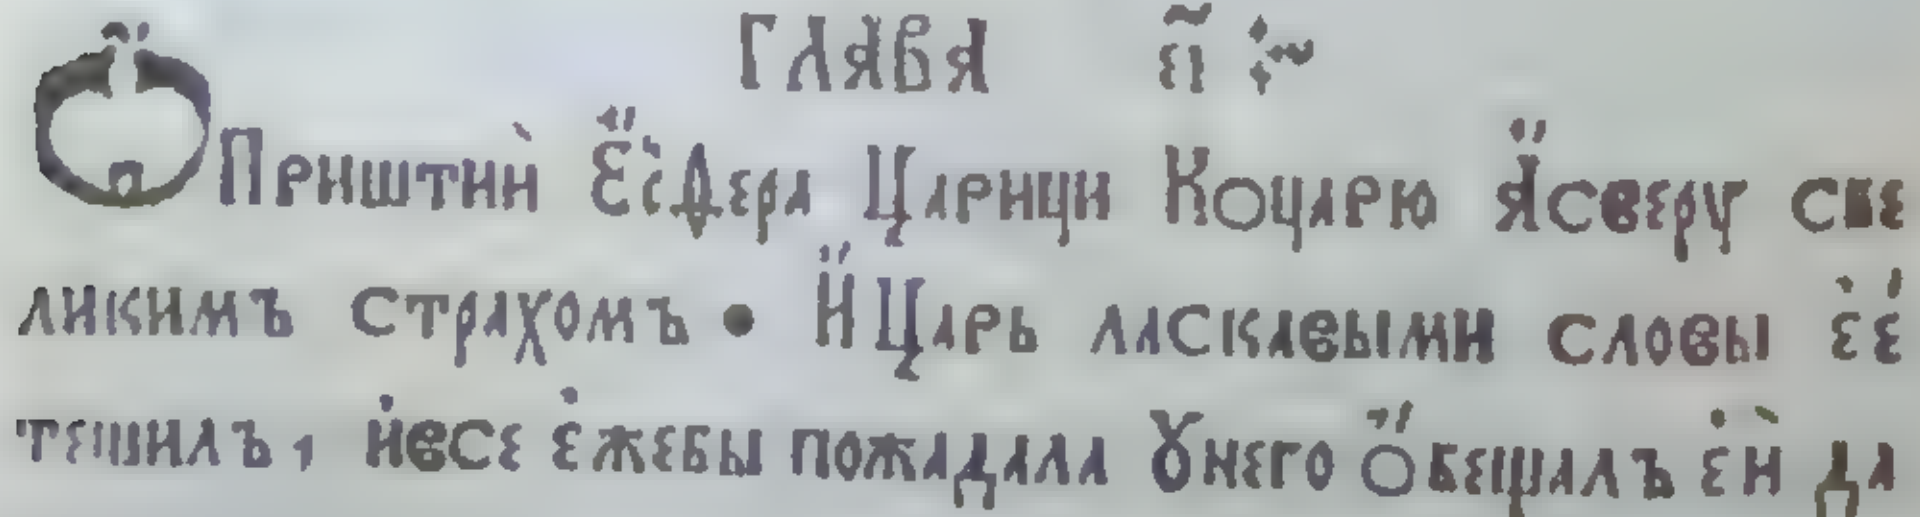 ГЛАВА е҃і ·:~
Ѡ҆ Приштии Е҆сѳера Царици Коцарю А҆сверу све
ликимъ страхомъ · И҆ Царь ласкавыми словы е҆е
тешилъ, и҆всє е҆жебы пожадала Ꙋнего О҆бещалъ е҆и да